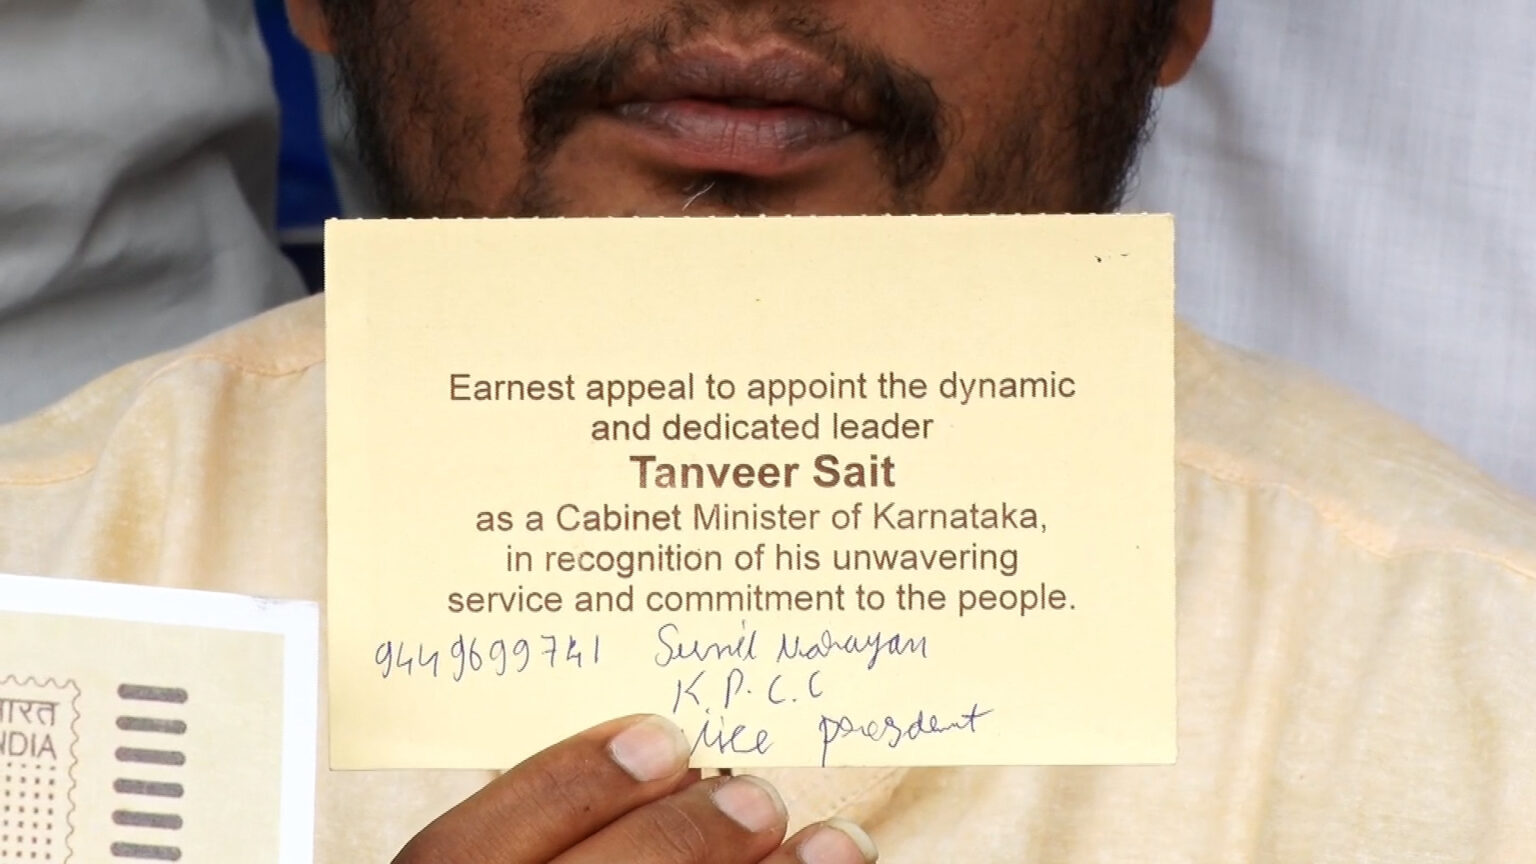 Earnest appeal to appoint the dynamic
and dedicated leader
Tanveer Sait
as a Cabinet Minister of Karnataka,
in recognition of his unwavering
service and commitment to the people.
9449699741 Sunil Narayan
K.P.C.C
Vice president
INDIA